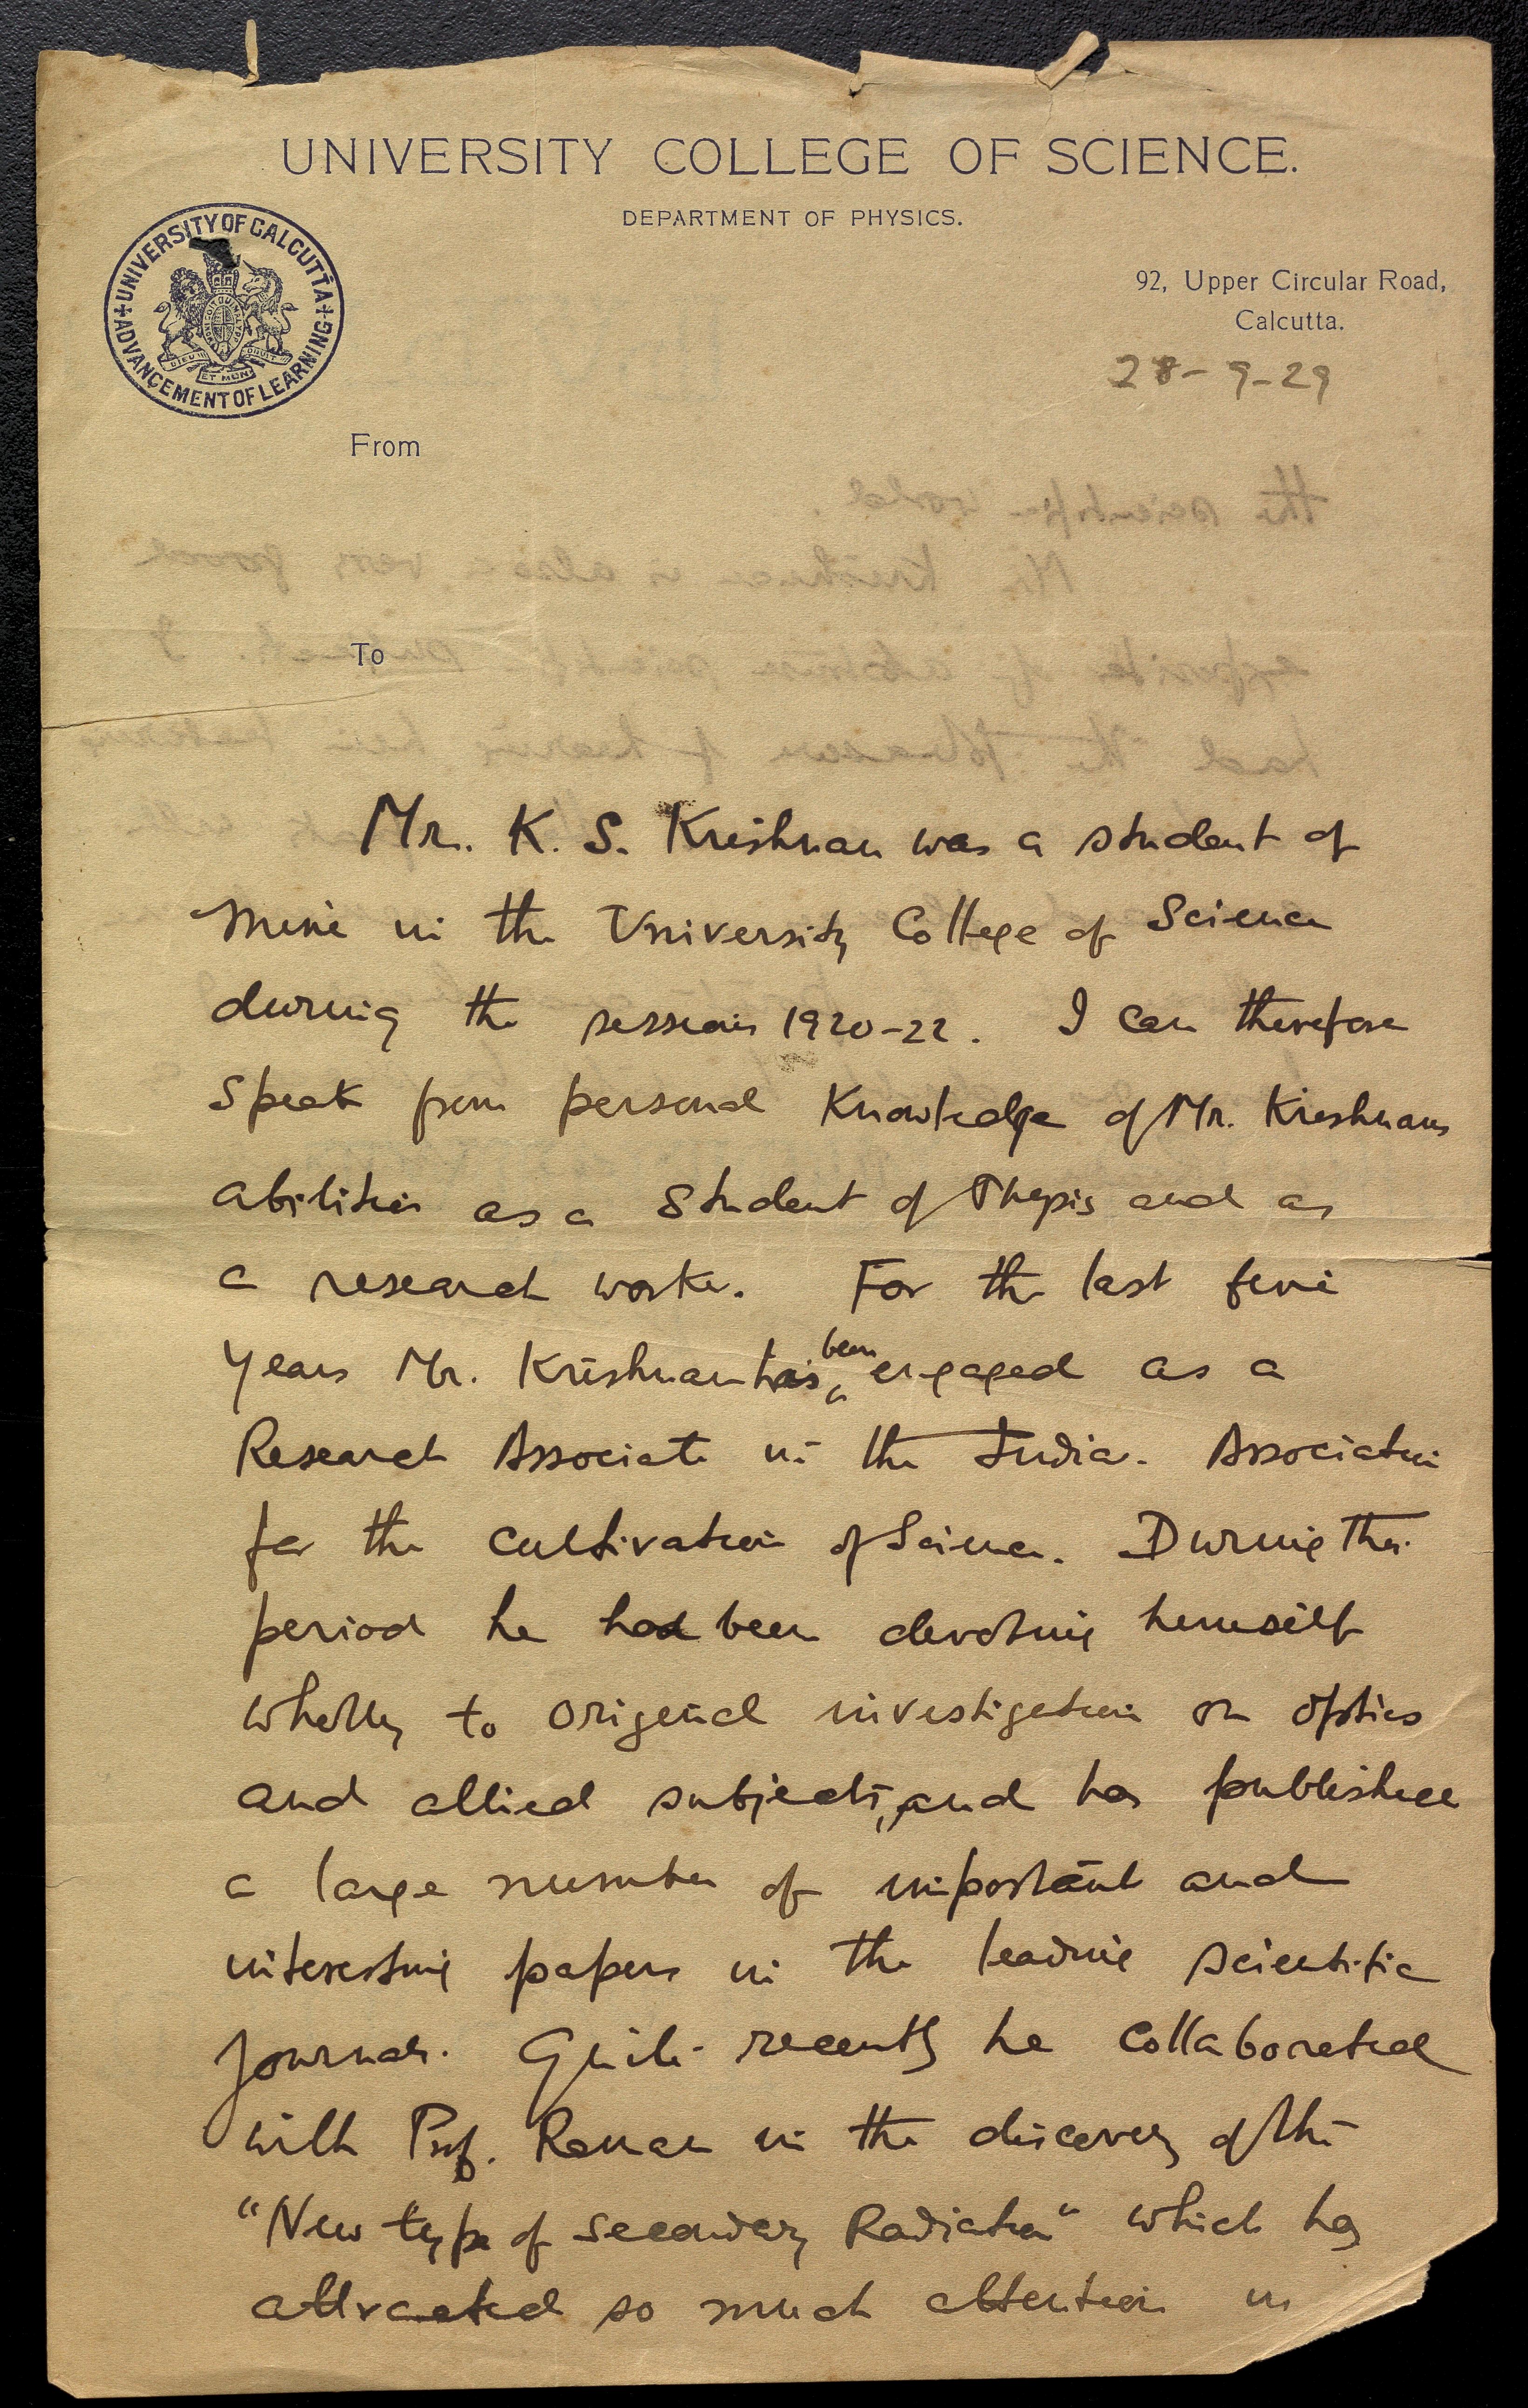 UNIVERSITY COLLEGE OF SCIENCE.
DEPARTMENT OF PHYSICS.
UNIVERSITY OF CALCUTTA
ADVANCEMENT OF LEARNING
DIEU ET MON DROIT
92, Upper Circular Road,
Calcutta.
28-9-29
From
To
Mr. K. S. Krishnan was a student of
mine in the University College of Science
during the session 1920-22. I can therefore
speak from personal knowledge of Mr. Krishnans
abilities as a student of Physics and as
a research worker. For the last five
years Mr. Krishnan has been engaged as a
Research Associate in the Indian Association
for the cultivation of Science. During this
period he had been devoting himself
wholly to original investigation on optics
and allied subjects, and has published
a large number of important and
interesting papers in the leading scientific
journals. Quite recently he collaborated
with Prof. Raman in the discovery of the
"New type of secondary Radiation" which has
attracted so much attention in